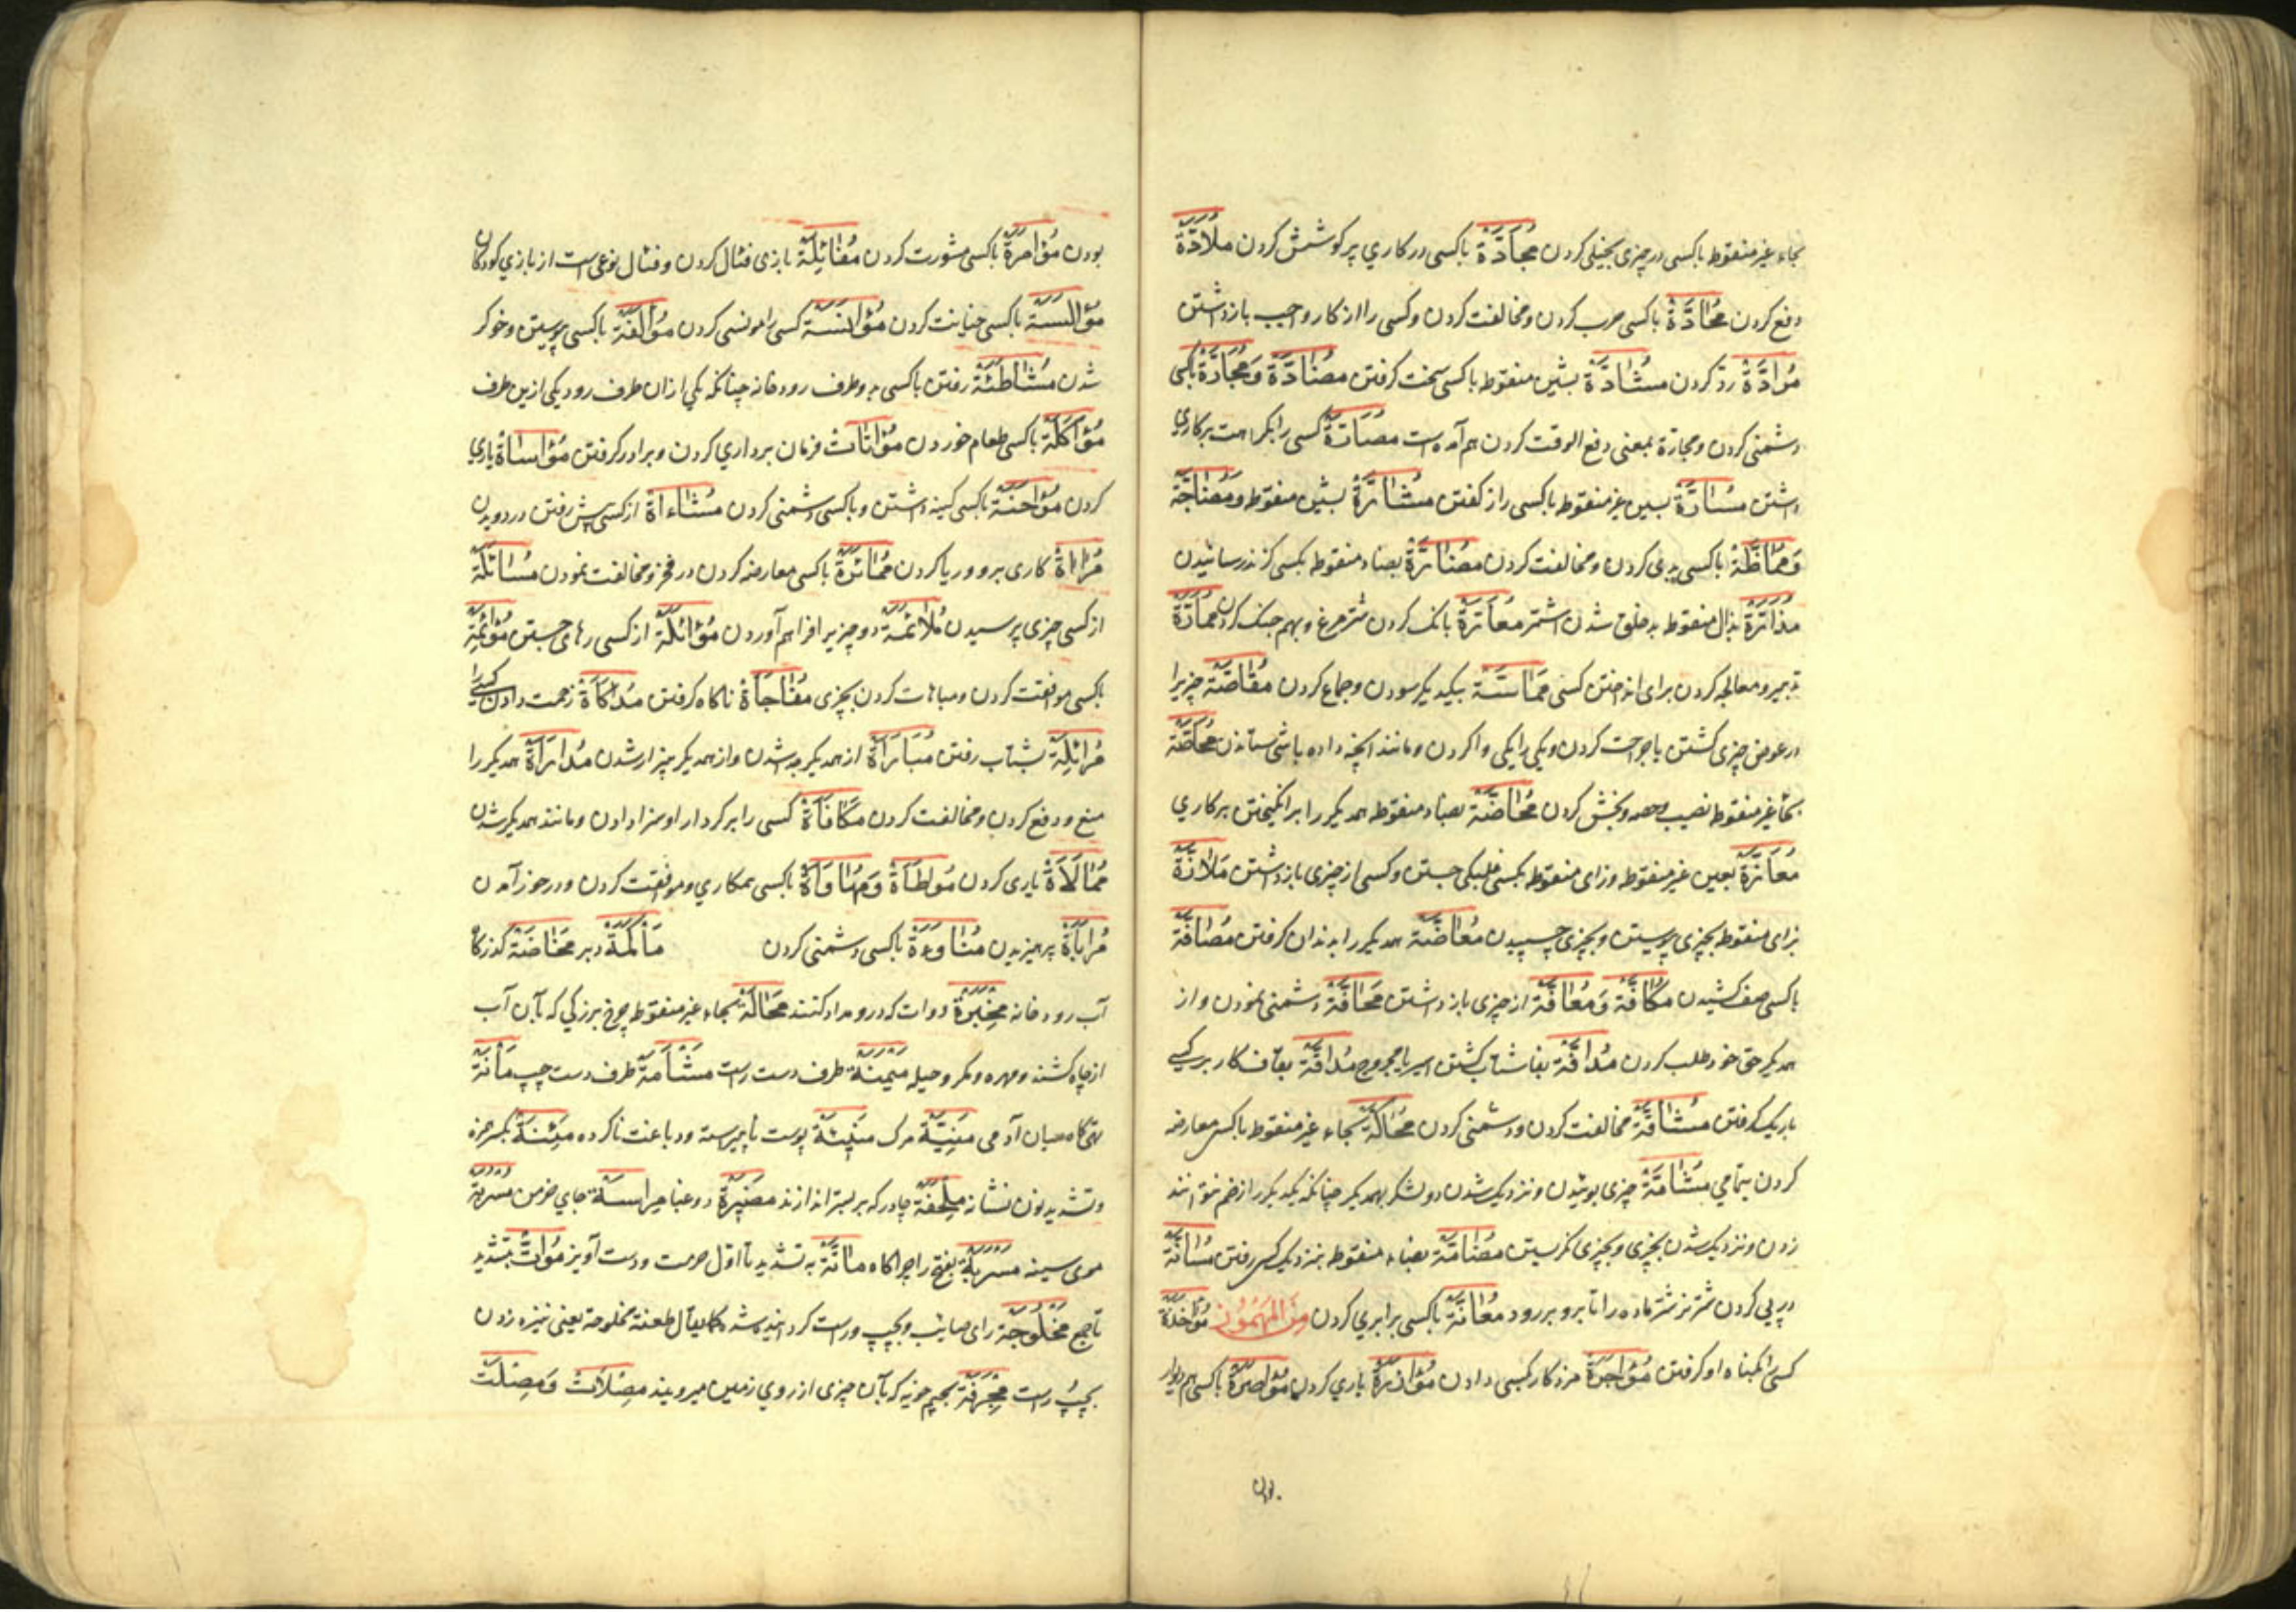 بحاء غیر منقوط باکسی در چیزی بخیلی کردن مُجَادَّة باکسی در کاری پر کوشش کردن مُلَادَّة
دفع کردن مُحَادَّة باکسی حرب کردن و مخالفت کردن و کسی را از کار واجب بازداشتن
مُرَادَّة ردّ کردن مُشَادَّة بشین منقوط باکسی سخت کرفتن مُضَادَّة وَ مُجَادَّة باکسی
دشمنی کردن و مجازة بمعنی دفع الوقت کردن هم آمده است مُصَارَّة کسی را بکراهت بر کاری
داشتن مُسَارَّة بسین غیر منقوط باکسی راز کفتن مُشَارَّة بشین منقوط وَ مُضَاجَّة
وَ مُمَاظَّة باکسی بدی کردن و مخالفت کردن مُضَارَّة بضاد منقوط بکسی کزند رسانیدن
مُذَارَّة بذال منقوط بدخلق شدن اشتر مُعَارَّة بانک کردن شتر مرغ و بهم جنک کردن مُمَارَّة
تدبیر و معالجه کردن برای انداختن کسی مُمَاسَّة بیکدیکر سودن و جماع کردن مُقَاصَّة چیزیرا
در عوض چیزی کشتن یا جراحت کردن و یکی را بیکی واکردن و مانند انچه داده باشی ستاندن مُحَاصَّة
بحاء غیر منقوط نصیب و حصه و بخش کردن مُحَاضَّة بضاد منقوطه همدیکر را برانکیختن بر کاری
مُعَازَّة بعین غیر منقوطه و زای منقوطه بکسی غلبکی جستن و کسی از چیزی بازداشتن مُلَازَّة
بزای منقوط بچیزی پیوستن و بچیزی چسپیدن مُعَاضَّة همدیکر را بدندان کرفتن مُصَافَّة
باکسی صف کشیدن مُکَافَّة وَ مُعَافَّة از چیزی بازداشتن مُحَاقَّة دشمنی نمودن و از
همدیکر حق خود طلب کردن مُدَافَّة بفا شتاب کشتن اسیر یا مجروح مُدَاقَّة بقاف کار بر کسی
باریک کرفتن مُشَاقَّة مخالفت کردن و دشمنی کردن مُحَاکَّة بحاء غیر منقوط باکسی معارضه
کردن بتمامی مُشَامَّة چیزی بوئیدن و نزدیک شدن دو لشکر بهمدیکر چنانکه یکدیکر را زخم نتوانند
زدن و نزدیک شدن بچیزی و بچیزی نکریستن مُضَامَّة بضاد منقوطه بنزدیک کسی رفتن مُسَانَّة
در پی کردن شتر نر شتر ماده را تا برو برود مُعَانَّة باکسی برابری کردن مِنَ المَهمُوزِ مُؤَاخَذَة
کسی را بکناه او کرفتن مُؤَاجَرَة مزد کار بکسی دادن مُؤَازَرَة یاری کردن مُؤَاصَرَة باکسی هم دیوار
بودن
بودن مُؤَامَرَة باکسی مشورت کردن مُفَائِلَة بازی فئال کردن و فئال نوعی است از بازی کودکان
مُؤَالَسَة باکسی خیانت کردن مُؤَانَسَة کسی را مونسی کردن مُؤَالَفَة باکسی پیوستن و خوکر
شدن مُشَاطَئَة رفتن باکسی بدو طرف رودخانه چنانکه یکی از ان طرف رود یکی ازین طرف
مُؤَاکَلَة باکسی طعام خوردن مُؤَاتَات فرمان برداری کردن و برادر کرفتن مُؤَاسَاة یاری
کردن مُؤَاحَنَة باکسی کینه داشتن و باکسی دشمنی کردن مُشَاءَاة از کسی پیش رفتن در دویدن
مُرَاءَاة کاری برو و ریا کردن مُمَائَرَة باکسی معارضه کردن در فخر و مخالفت نمودن مُسَائَلَة
از کسی چیزی پرسیدن مُلَائَمَة دو چیز بر افراهم آوردن مُؤَائَلَة از کسی رهای جستن مُؤَائَمَة
باکسی موافقت کردن و مباهات کردن بچیزی مُفَاجَأَة ناکاه کرفتن مُدَاکَأَة زحمت دادن کسی را
مُرَائِلَة شتاب رفتن مُبَارَأَة از همدیکر جدا شدن و از همدیکر بیزار شدن مُدَارَأَة همدیکر را
منع و دفع کردن و مخالفت کردن مُکَافَأَة کسی را بر کردار او سزا دادن و مانند همدیکر شدن
مُمَالَأَة یاری کردن مُوَاطَأَة وَ مُهَاوَأَة باکسی همکاری و موافقت کردن و در خور آمدن
مُرَابَأَة پرهیزیدن مُنَاوَءَة باکسی دشمنی کردن مَأکَمَة دبر مَخَاضَة کذرکاه
آب رودخانه مِحْبَرَة دوات که درو مداد کنند مَحَالَة بحاء غیر منقوط چرخ بزرکی که بآن آب
از چاه کشند و مهره و مکر و حیله مَیْمَنَة طرف دست راست مَشْأَمَة طرف دست چپ مَأنَة
تهیکاه میان آدمی مَنِیَّة مرک مَنِیئَة پوست نا پیراسته و دباغت ناکرده مَئِنَّة بکسر همزه
و تشدید نون نشانه مِلْحَفَة چادر که بر بستر اندازند مَضِیرَة دوغبا مِرَاسَة جای خرمن مَسْرُبَة
موی سینه مَسْرَبَة بفتح را چراکاه مَاتَّة به تشدید تا اول حرمت و دست آویز مَوَاتّ بتشدید
تا جمع مَخْلُوجَة رای صائب و بچپ و راست کردانیده شده کما یقال طعنة مخلوجة یعنی نیزه زدن
بچپ و راست مِجْرَفَة بجیم چیزی که بآن چیزی از روی زمین میروبند مِصْلَات وَ مِصْلَت